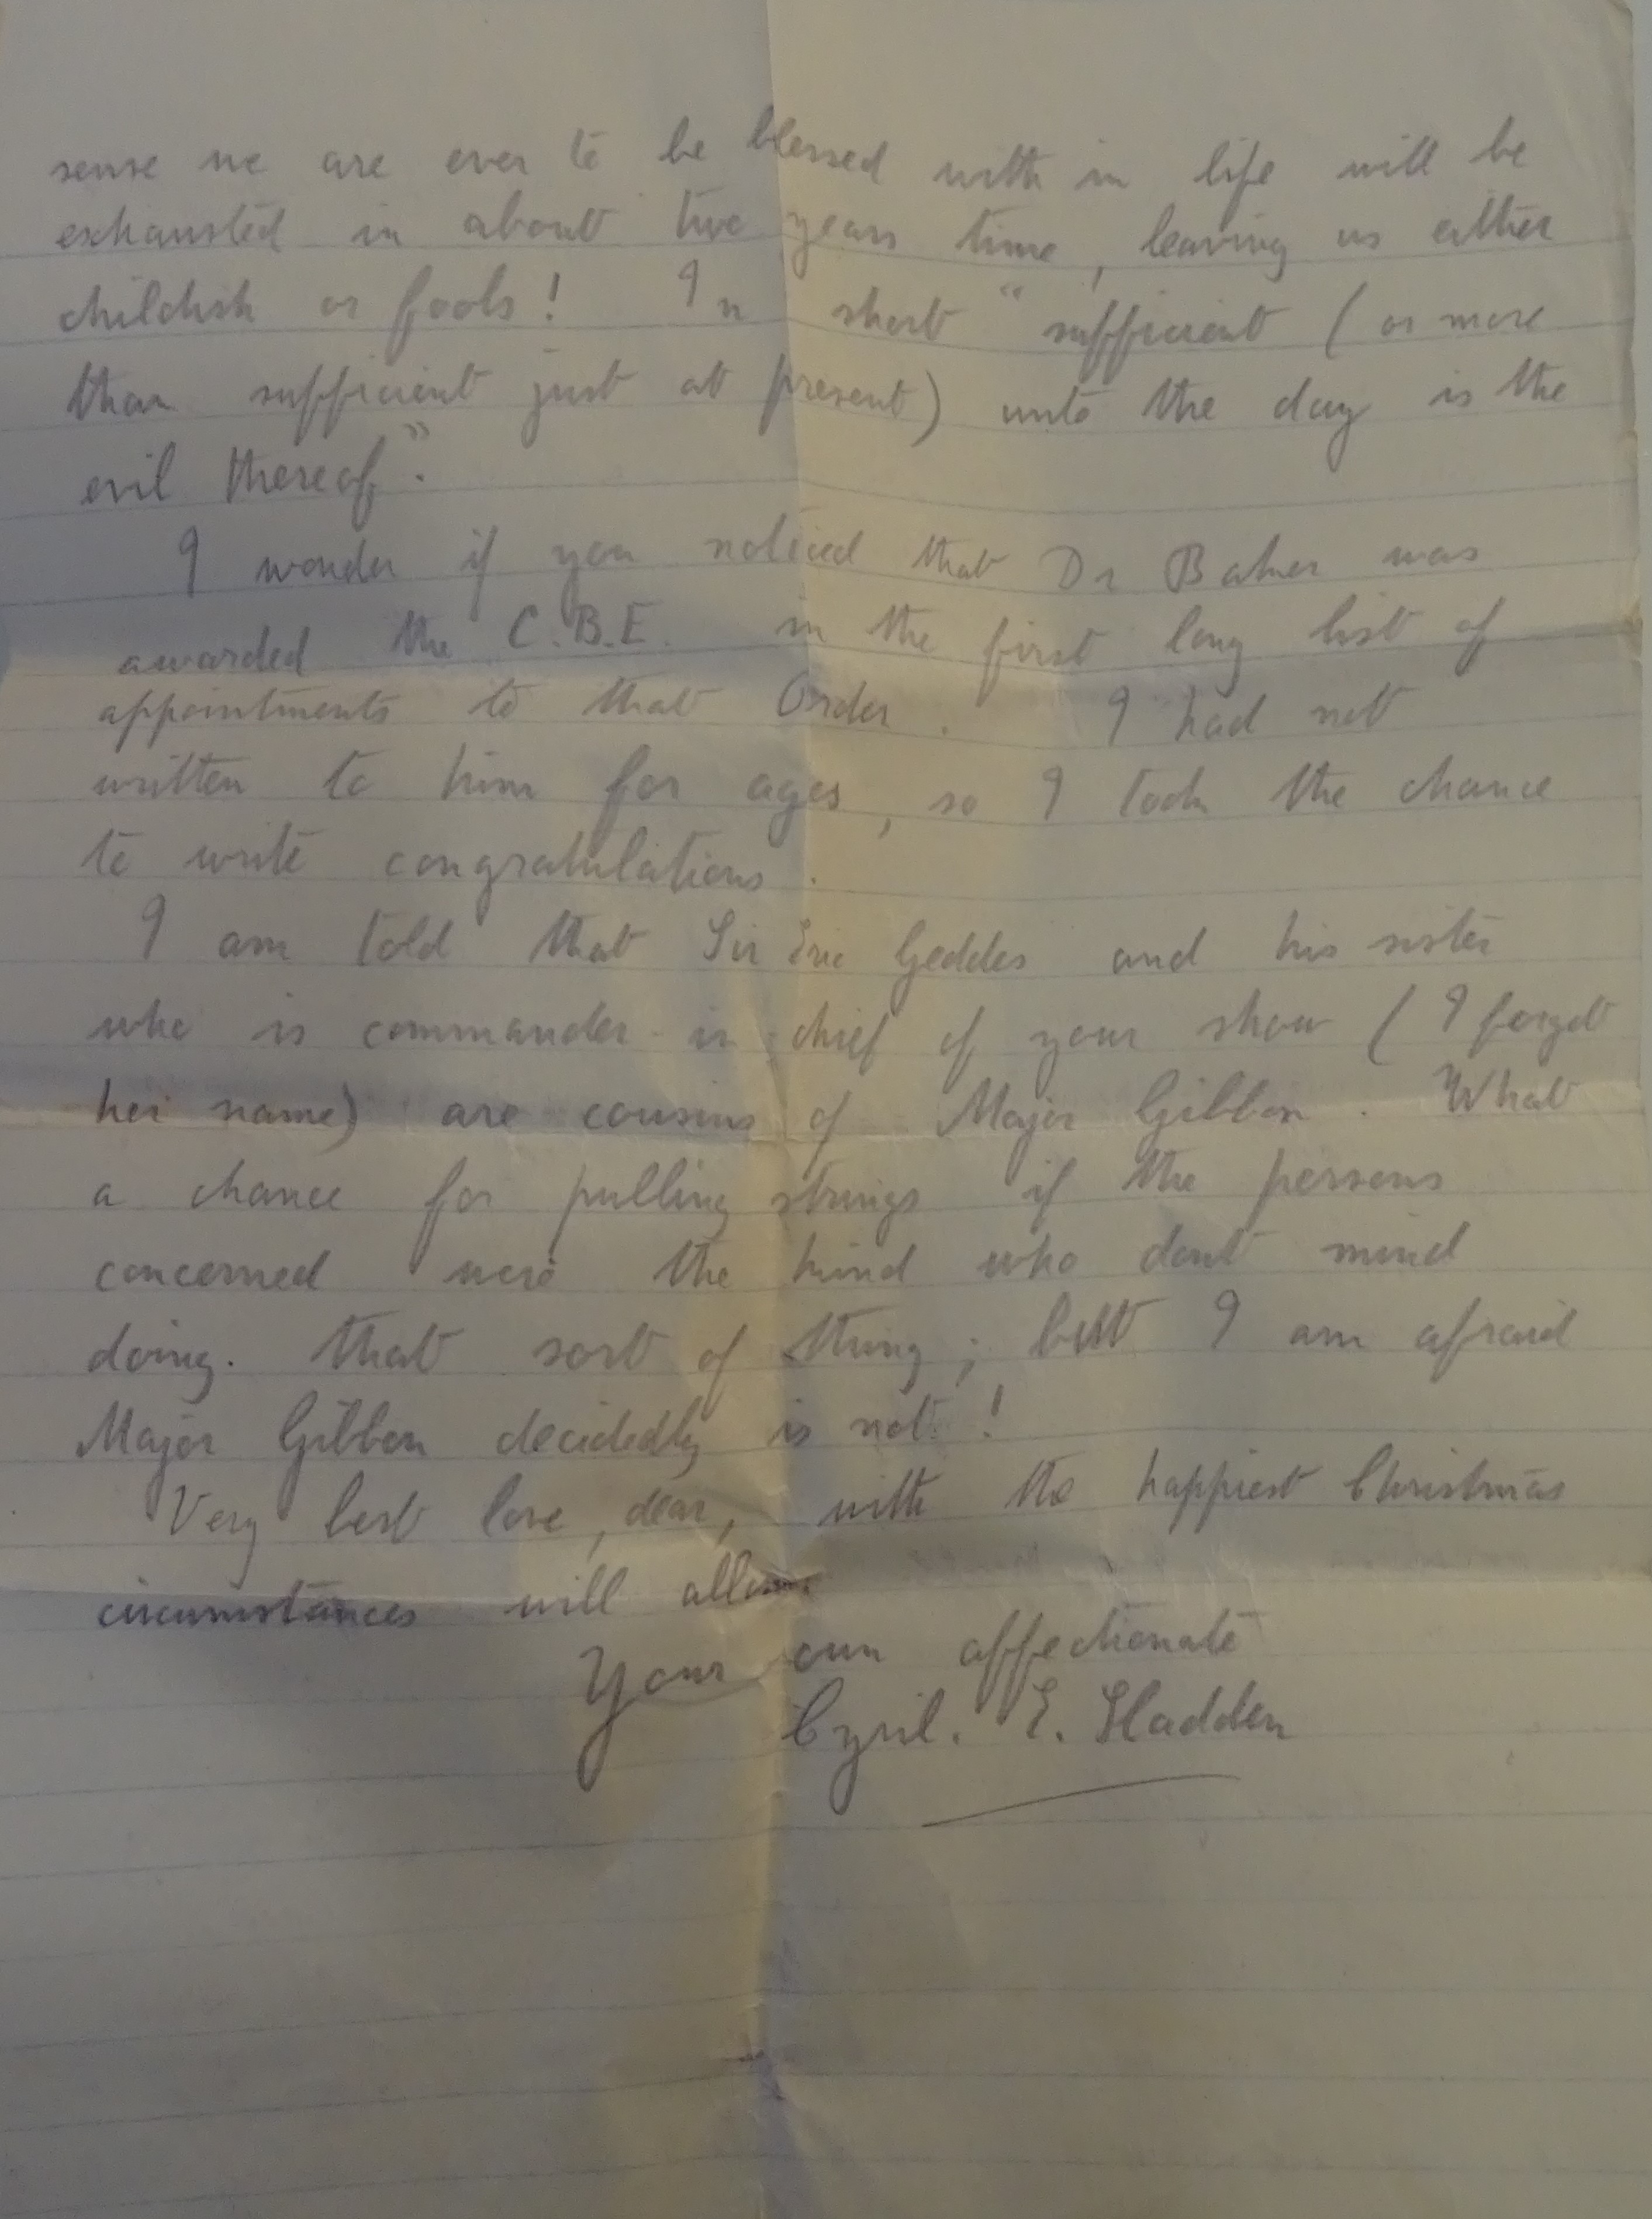 sense we are ever to be blessed with in life will be
exhausted in about two years time, leaving us either
childish or fools! In short "sufficient (or more
than sufficient just at present) unto the day is the
evil thereof".
I wonder if you noticed that Dr Baker was
awarded the C.B.E. in the first long list of
appointments to that Order. I had not
written to him for ages, so I took the chance
to write congratulations.
I am told that Sir Eric Geddes and his sister
who is commander-in-chief of your show (I forget
her name) are cousins of Major Gibbon. What
a chance for pulling strings if the persons
concerned were the kind who dont mind
doing. that sort of thing; but I am afraid
Major Gibbon decidedly is not!
Very best love, dear, with the happiest Christmas
circumstances will allow
Your own affectionate
Cyril. E. Sladden